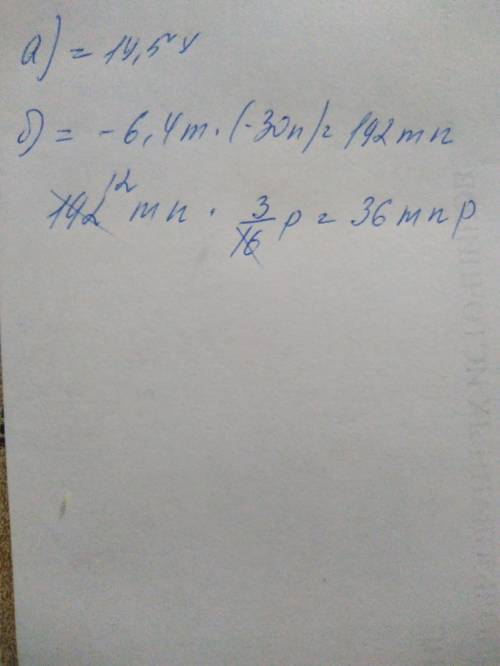 а) = 14,5 y
б) = - 6,4m · (-30n) = 192mn
192 12 mn · 3/16 p = 36mnp